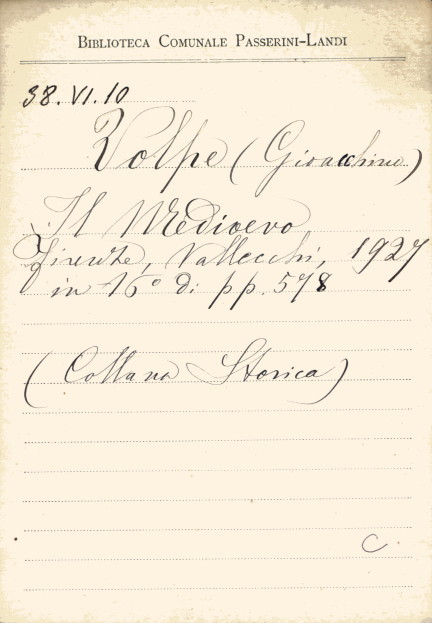 BIBLIOTECA COMUNALE PASSERINI-LANDI
38.VI.10
Volpe (Gioacchino)
Il Medioevo
Firenze, Vallecchi, 1927
in 16° di pp. 578
(Collana Storica)
C.